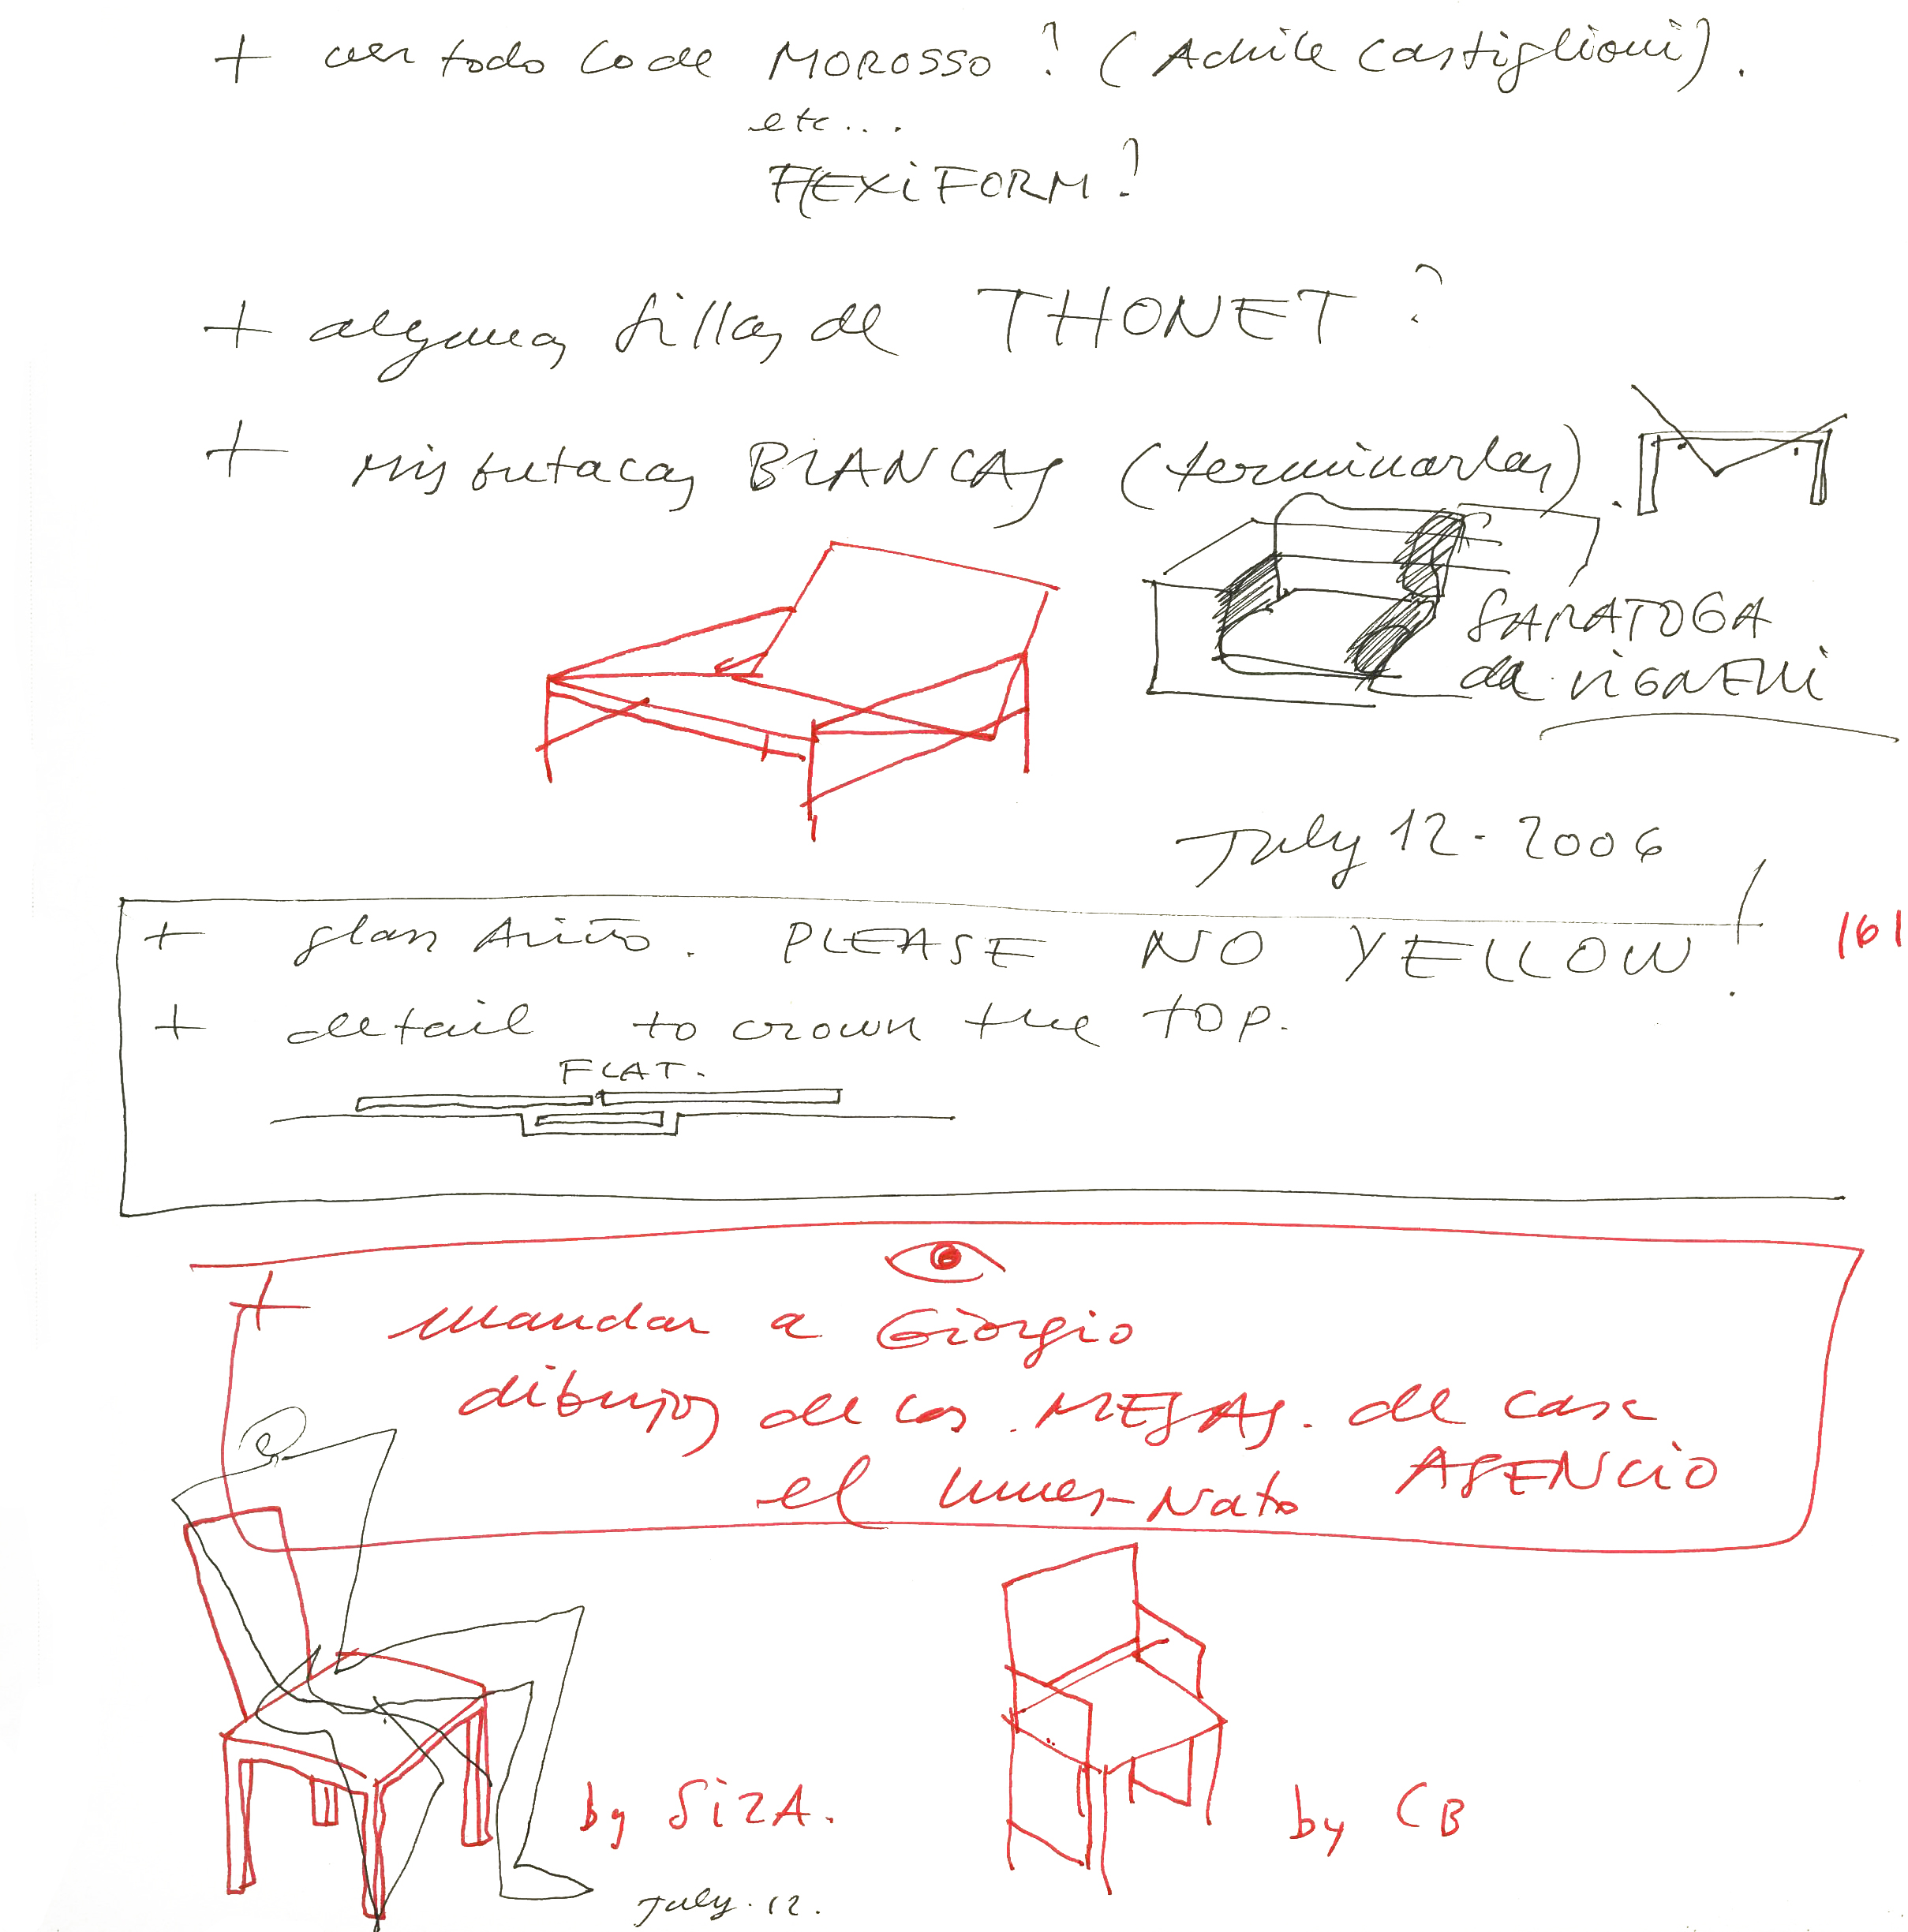 + ver todo lo de MOROSSO? (Achile Castiglioni).
etc...
FLEXiFORM?
+ algunas sillas de THONET?
+ mis butacas BLANCAS (terminarlas).
SARATOGA
de ViGNELLi
July 12 - 2006
+ PLEASE NO YELLOW!
161
+ detail to crown the top.
FLAT.
+ mandar a Giorgio
dibujos de las MESAS. de casa
el ASENCiO
by SizA.
by CB
July. 12.